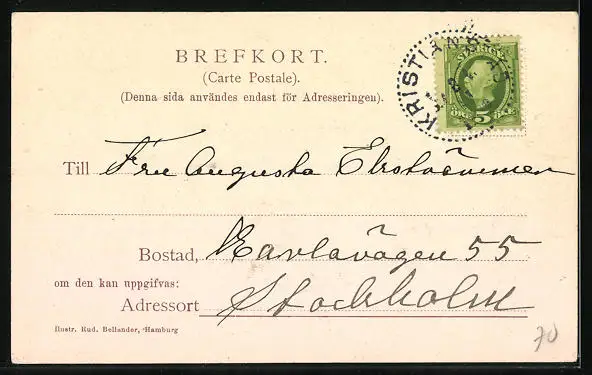 BREFKORT.
(Carte Postale).
(Denna sida användes endast för Adresseringen).
KRISTIANSTAD
SVERIGE
ÖRE 5 ÖRE
Till Fru Augusta
Bostad, Karlavägen 55
om den kan uppgifvas:
Adressort Stockholm
Illustr. Rud. Bellander, Hamburg
70